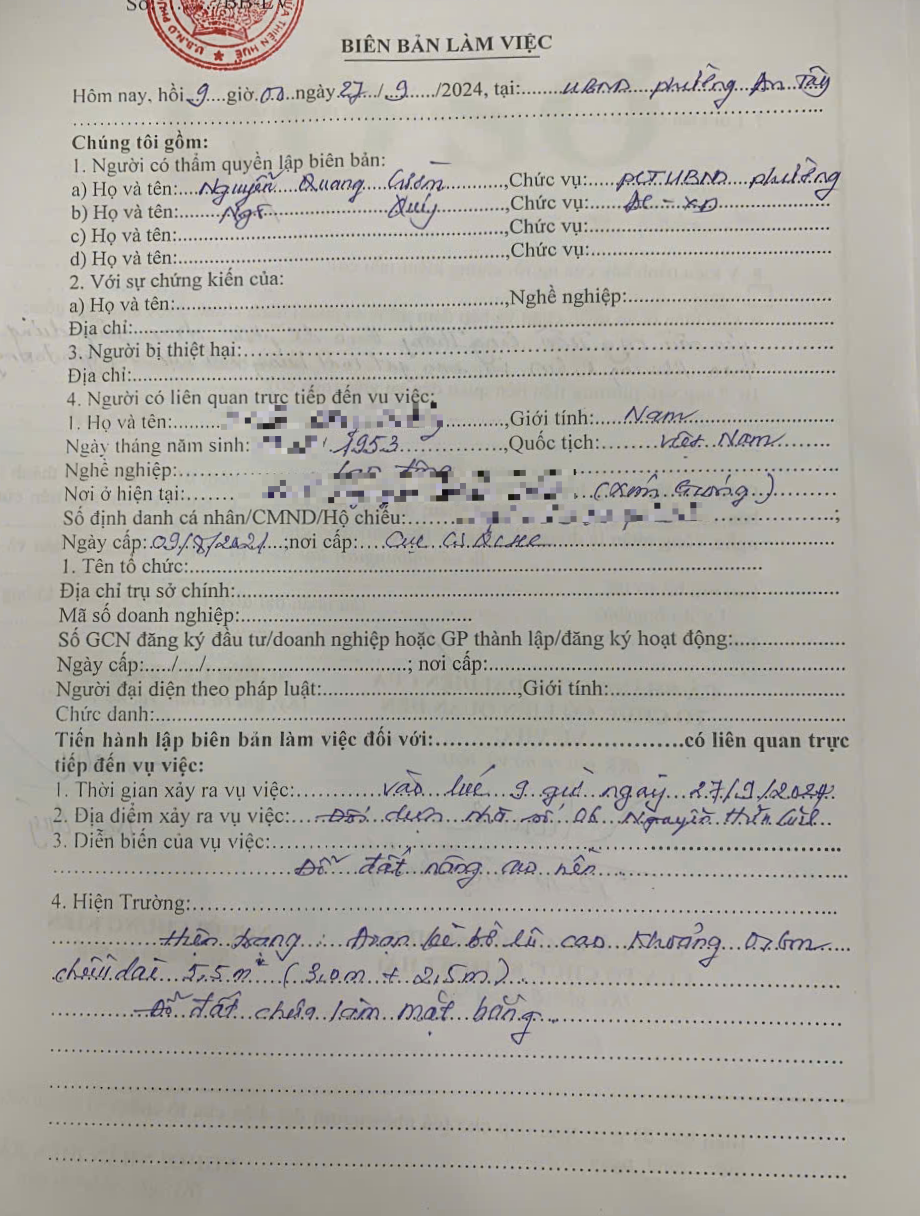 Số /BB-LV
THỪA THIÊN HUẾ
U.B.N.D
BIÊN BẢN LÀM VIỆC
Hôm nay, hồi 9 giờ 00 ngày 27 / 9 /2024, tại: UBND phường An Tây
Chúng tôi gồm:
1. Người có thẩm quyền lập biên bản:
a) Họ và tên: Nguyễn Quang ,Chức vụ: PCT UBND phường
b) Họ và tên: Ngô Quý ,Chức vụ: ĐC - XD
c) Họ và tên: ,Chức vụ:
d) Họ và tên: ,Chức vụ:
2. Với sự chứng kiến của:
a) Họ và tên: ,Nghề nghiệp:
Địa chỉ:
3. Người bị thiệt hại:
Địa chỉ:
4. Người có liên quan trực tiếp đến vụ việc:
1. Họ và tên: ,Giới tính: Nam
Ngày tháng năm sinh: 1953 ,Quốc tịch: Việt Nam
Nghề nghiệp: Lao động
Nơi ở hiện tại:
Số định danh cá nhân/CMND/Hộ chiếu: ;
Ngày cấp: 09/8/2021 ;nơi cấp: Cục CS QLHC
1. Tên tổ chức:
Địa chỉ trụ sở chính:
Mã số doanh nghiệp:
Số GCN đăng ký đầu tư/doanh nghiệp hoặc GP thành lập/đăng ký hoạt động:
Ngày cấp: / / ; nơi cấp:
Người đại diện theo pháp luật: ,Giới tính:
Chức danh:
Tiến hành lập biên bản làm việc đối với: có liên quan trực
tiếp đến vụ việc:
1. Thời gian xảy ra vụ việc: vào lúc 9 giờ ngày 27/9/2024
2. Địa điểm xảy ra vụ việc: nhà số 06 Nguyễn
3. Diễn biến của vụ việc:
Đổ đất nâng cao nền
4. Hiện Trường:
Hiện trạng : Đoạn bê cao khoảng 0,6m
chiều dài 5,5m (3,0m + 2,5m)
Đổ đất chưa làm mặt bằng